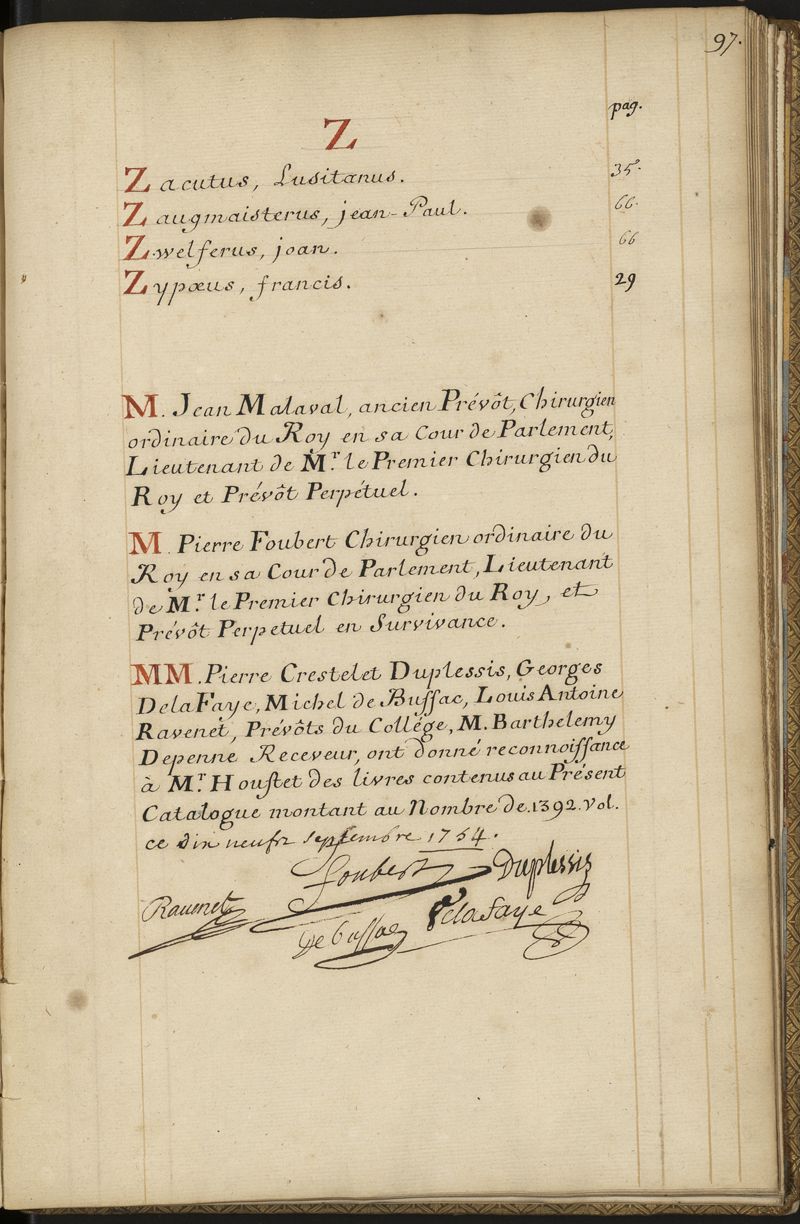 97.
pag.
Z
Zacutus, Lusitanus. 35.
Zaugmaisterus, jean-Paul. 66.
Zwelferus, joan. 66
Zypœus, francis. 29
M. Jean Malaval, ancien Prévôt, Chirurgien
ordinaire du Roy en sa Cour de Parlement,
Lieutenant de Mr. le Premier Chirurgien du
Roy et Prévôt Perpétuel.
M. Pierre Foubert Chirurgien ordinaire du
Roy en sa Cour de Parlement, Lieutenant
de Mr. le Premier Chirurgien du Roy, et
Prévôt Perpetuel en Survivance.
MM. Pierre Crestelet Duplessis, Georges
De la Faye, Michel de Buſſac, Louis Antoine
Ravenet, Prévôts du Collége, M. Barthelemy
Depenné Receveur, ont donné reconnoiſſance
à Mr. Houſtet des livres contenus au Présent
Catalogue montant au Nombre de.1392.Vol.
ce dix neufe septembre 1754.
foubert Duplessis
Ravenet De buſſac Delafaye